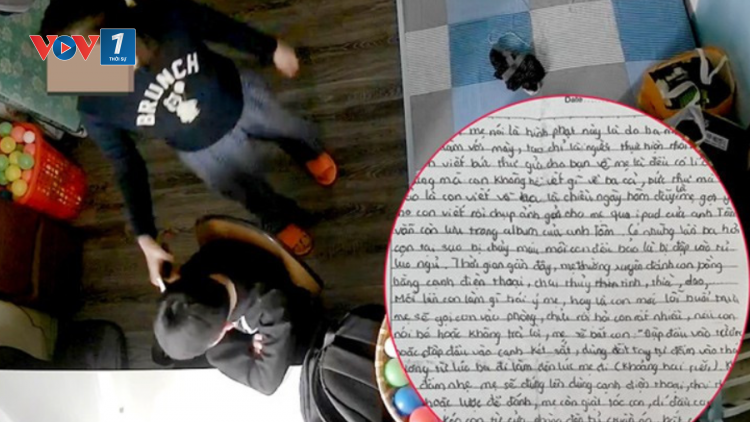 VOV1
THỜI SỰ
BRUNCH
Date
mẹ nói là hình phạt này là do ba mẹ
làm với mày, tao chỉ là người thực hiện
viết bức thư gửi cho bạn về mẹ là đều có lí
mà con không hề viết gì về ba cả, bức thư mà
là con viết về ba là chiều ngày hôm đấy mẹ gợi ý
cho con viết rồi chụp ảnh gửi cho mẹ qua ipad của anh Tâm
vẫn còn lưu trong album của anh Tâm. Có những lúc ba hỏi
con sao bị chảy máu môi con đều bảo là bị đập vào tủ
lúc ngủ. Thời gian gần đây, mẹ thường xuyên đánh con bằng
bằng cạnh điện thoại, chai thủy tinh, thìa, dao,
Mỗi lần con làm gì trái ý mẹ, hay là con
mẹ sẽ gọi con vào phòng, chửi rủa con rất nhiều, nếu con
nói bé hoặc không trả lời, mẹ sẽ bắt con "Đập đầu vào
hoặc đập đầu vào cạnh két sắt, dùng đốt tay tự đấm vào
từ lúc ba đi làm đến lúc mẹ đi (khoảng hai
đấm nhẹ mẹ sẽ dùng lên dùng cạnh điện thoại,
hoặc lược để đánh, mẹ còn giật tóc con, dí đầu